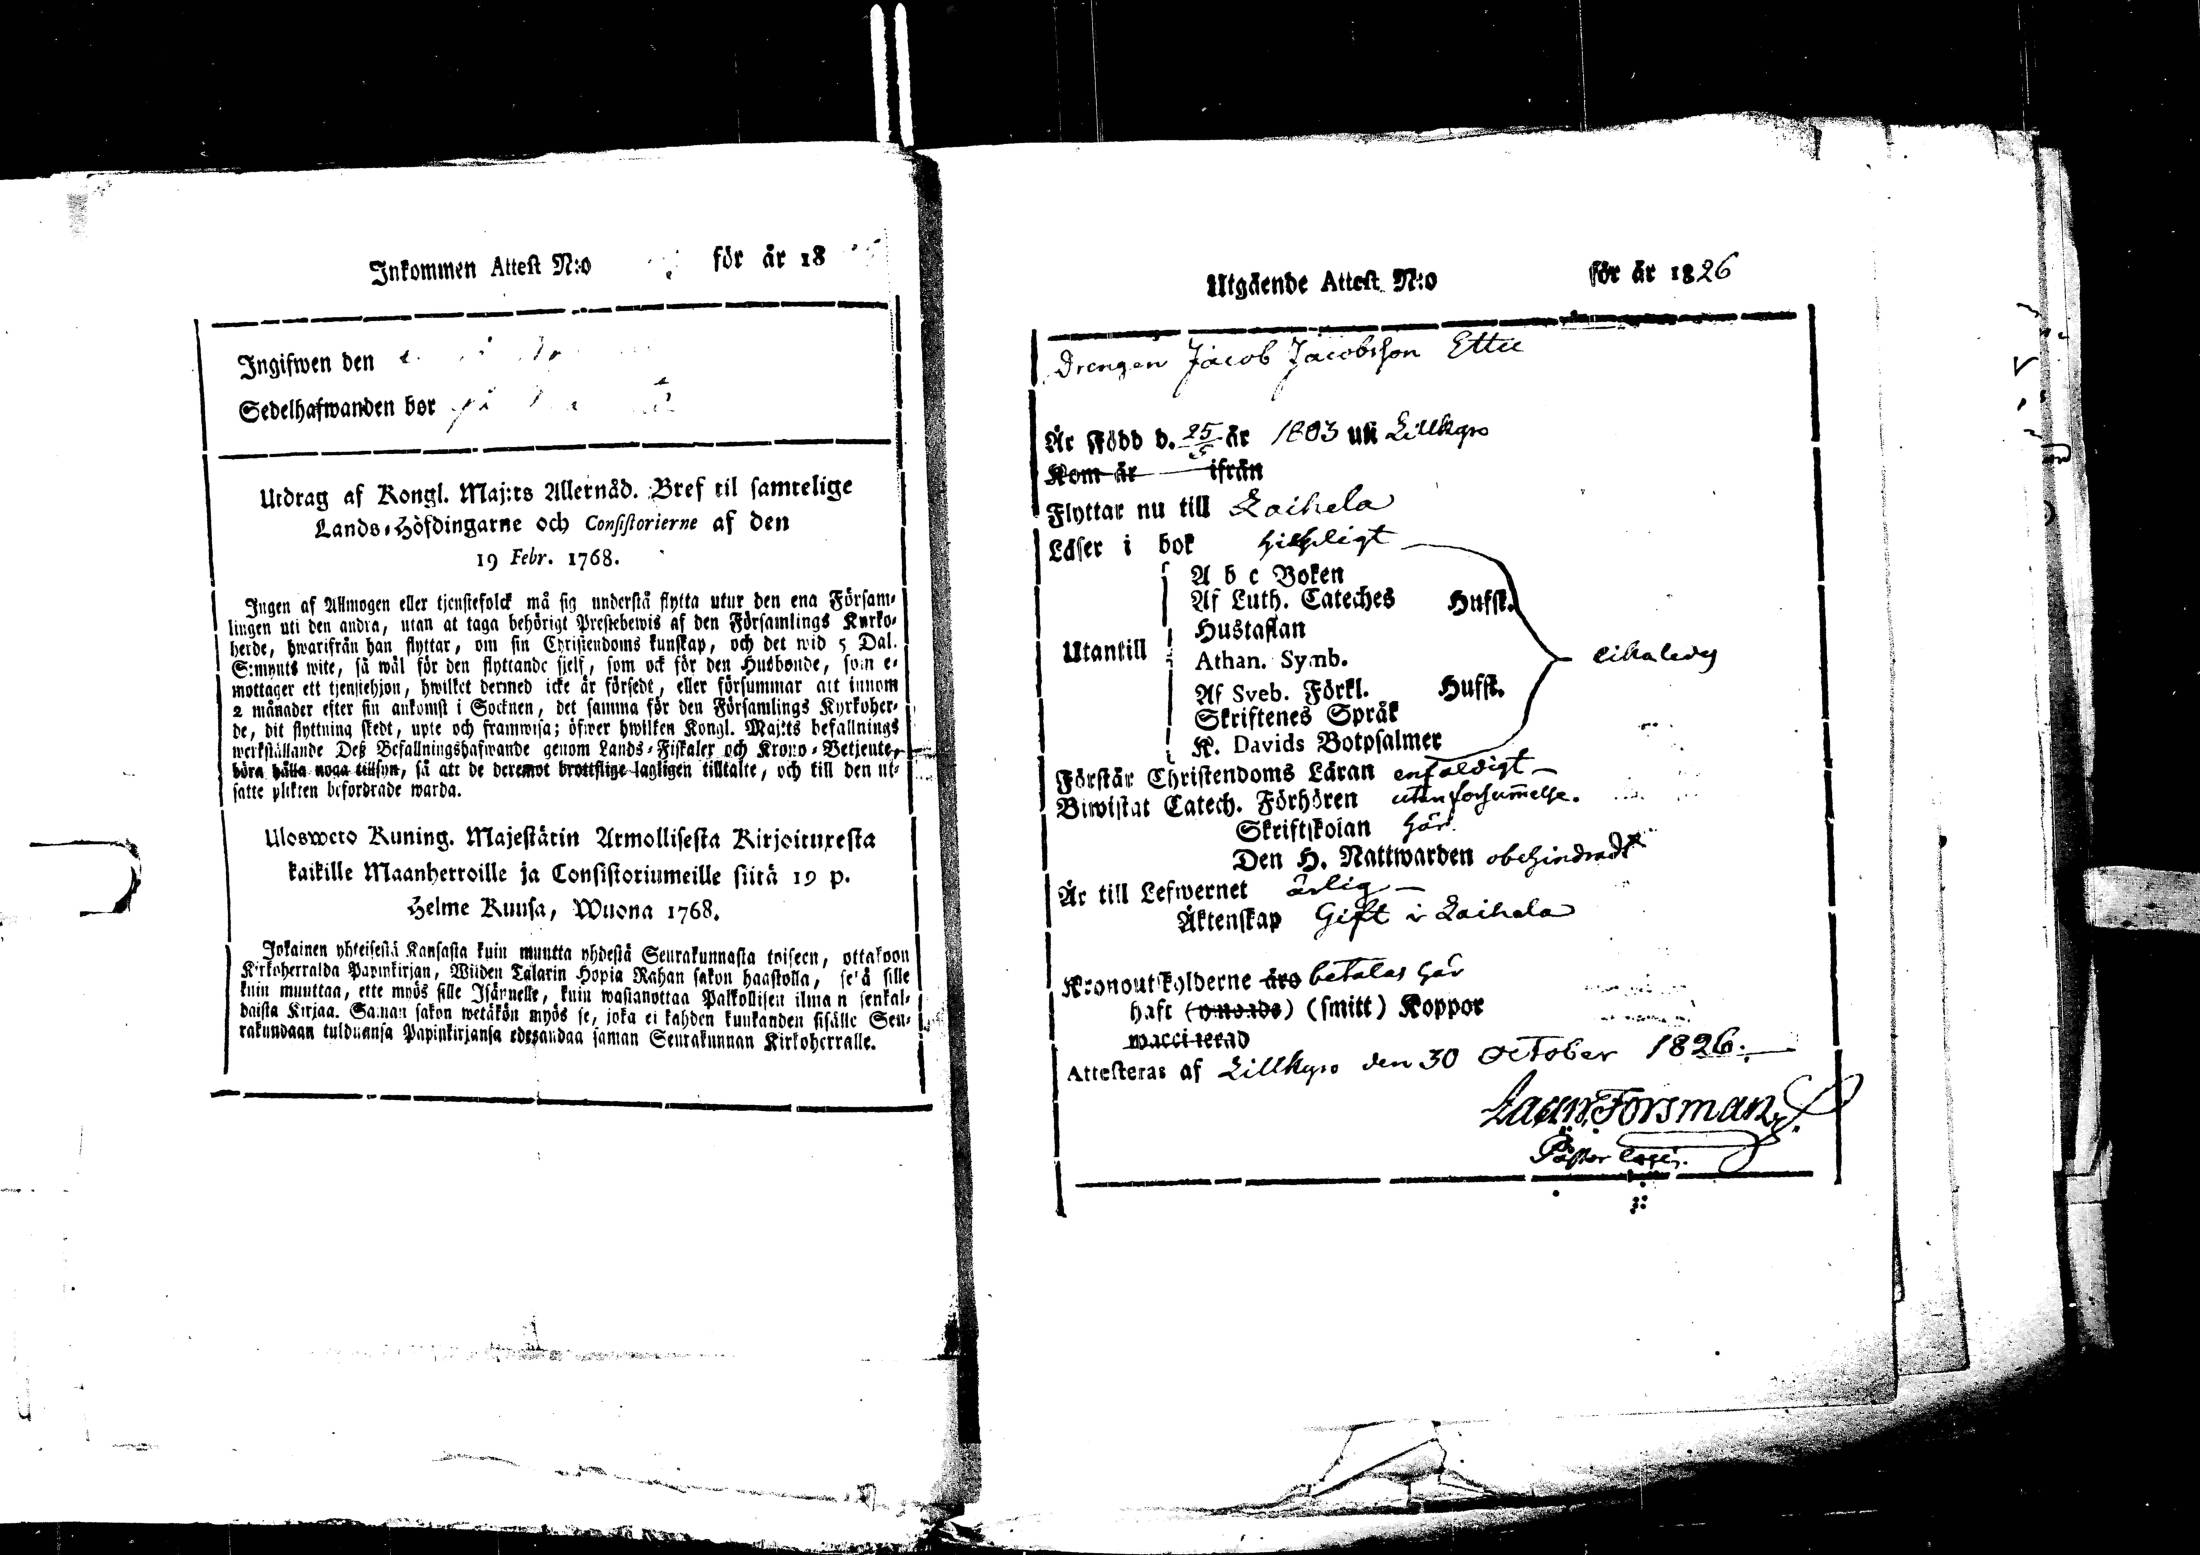 Inkommen Attest N:o för år 18
Ingifwen den
Sedelhafwanden bor på
Utdrag af Kongl. Maj:ts Allernåd. Bref til samtelige
Lands-Höfdingarne och Consistorierne af den
19 Febr. 1768.
Ingen af Allmogen eller tjenstefolck må sig understå flytta utur den ena Försam-
lingen uti den andra, utan at taga behörigt Prestebewis af den Församlings Kyrko-
herde, hwarifrån han flyttar, om sin Christendoms kunskap, och det wid 5 Dal.
S:mynts wite, så wäl för den flyttande sjelf, som ock för den Husbonde, som e-
mottager ett tjenstehjon, hwilket dermed icke är försedt, eller försummar att innom
2 månader efter sin ankomst i Socknen, det samma för den Församlings Kyrkoher-
de, dit flyttning skedt, upte och framwisa; öfwer hwilken Kongl. Maj:ts befallnings
werkställande Deß Befallningshafwande genom Lands-Fiskaler och Krono-Betjente,
böra hålla noga tillsyn, så att de deremot brottslige lagligen tilltalte, och till den ut-
satte plikten befordrade warda.
Ulosweto Kuning. Majestätin Armollisesta Kirjoituxesta
kaikille Maanherroille ja Consistoriumeille siitä 19 p.
Helme Kuusa, Wuona 1768.
Jokainen yhteisestä Kansasta kuin muutta yhdestä Seurakunnasta toiseen, ottakoon
Kirkoherralda Papinkirjan, Wiiden Talarin Hopia Rahan sakon haastolla, se'ä sille
kuin muuttaa, ette myös sille Isännelle, kuin wastanottaa Palkollisen ilman senkal-
daista Kirjaa. Saman sakon wetäkön myös se, joka ei kahden kuukauden sisälle Seu-
rakundaan tulduansa Papinkirjansa edesandaa saman Seurakunnan Kirkoherralle.
Utgående Attest N:o för år 1826
Drengen Jacob Jacobsson
Är Född d. 25/5 år 1803 uti Lillkyro
Kom år ifrån
Flyttar nu till Laihela
Läser i bok hjelpligt
A b c Boken
Af Luth. Cateches Hufst.
Hustaflan
Utantill
Athan. Symb.
Af Sveb. Förkl. Hufst.
Skriftenes Språk
K. Davids Botpsalmer
Förstår Christendoms Läran enfaldigt
Biwistat Catech. Förhören utan försummelse.
Skriftskolan här
Den H. Nattwarden obehindradt
Är till Lefwernet ärlig
Äktenskap Gift i Laihela
Kronoutskylderne äro betalas här
haft (smitt) Koppor
waccinerad
Attesteras af Lillkyro den 30 October 1826.
Forsman